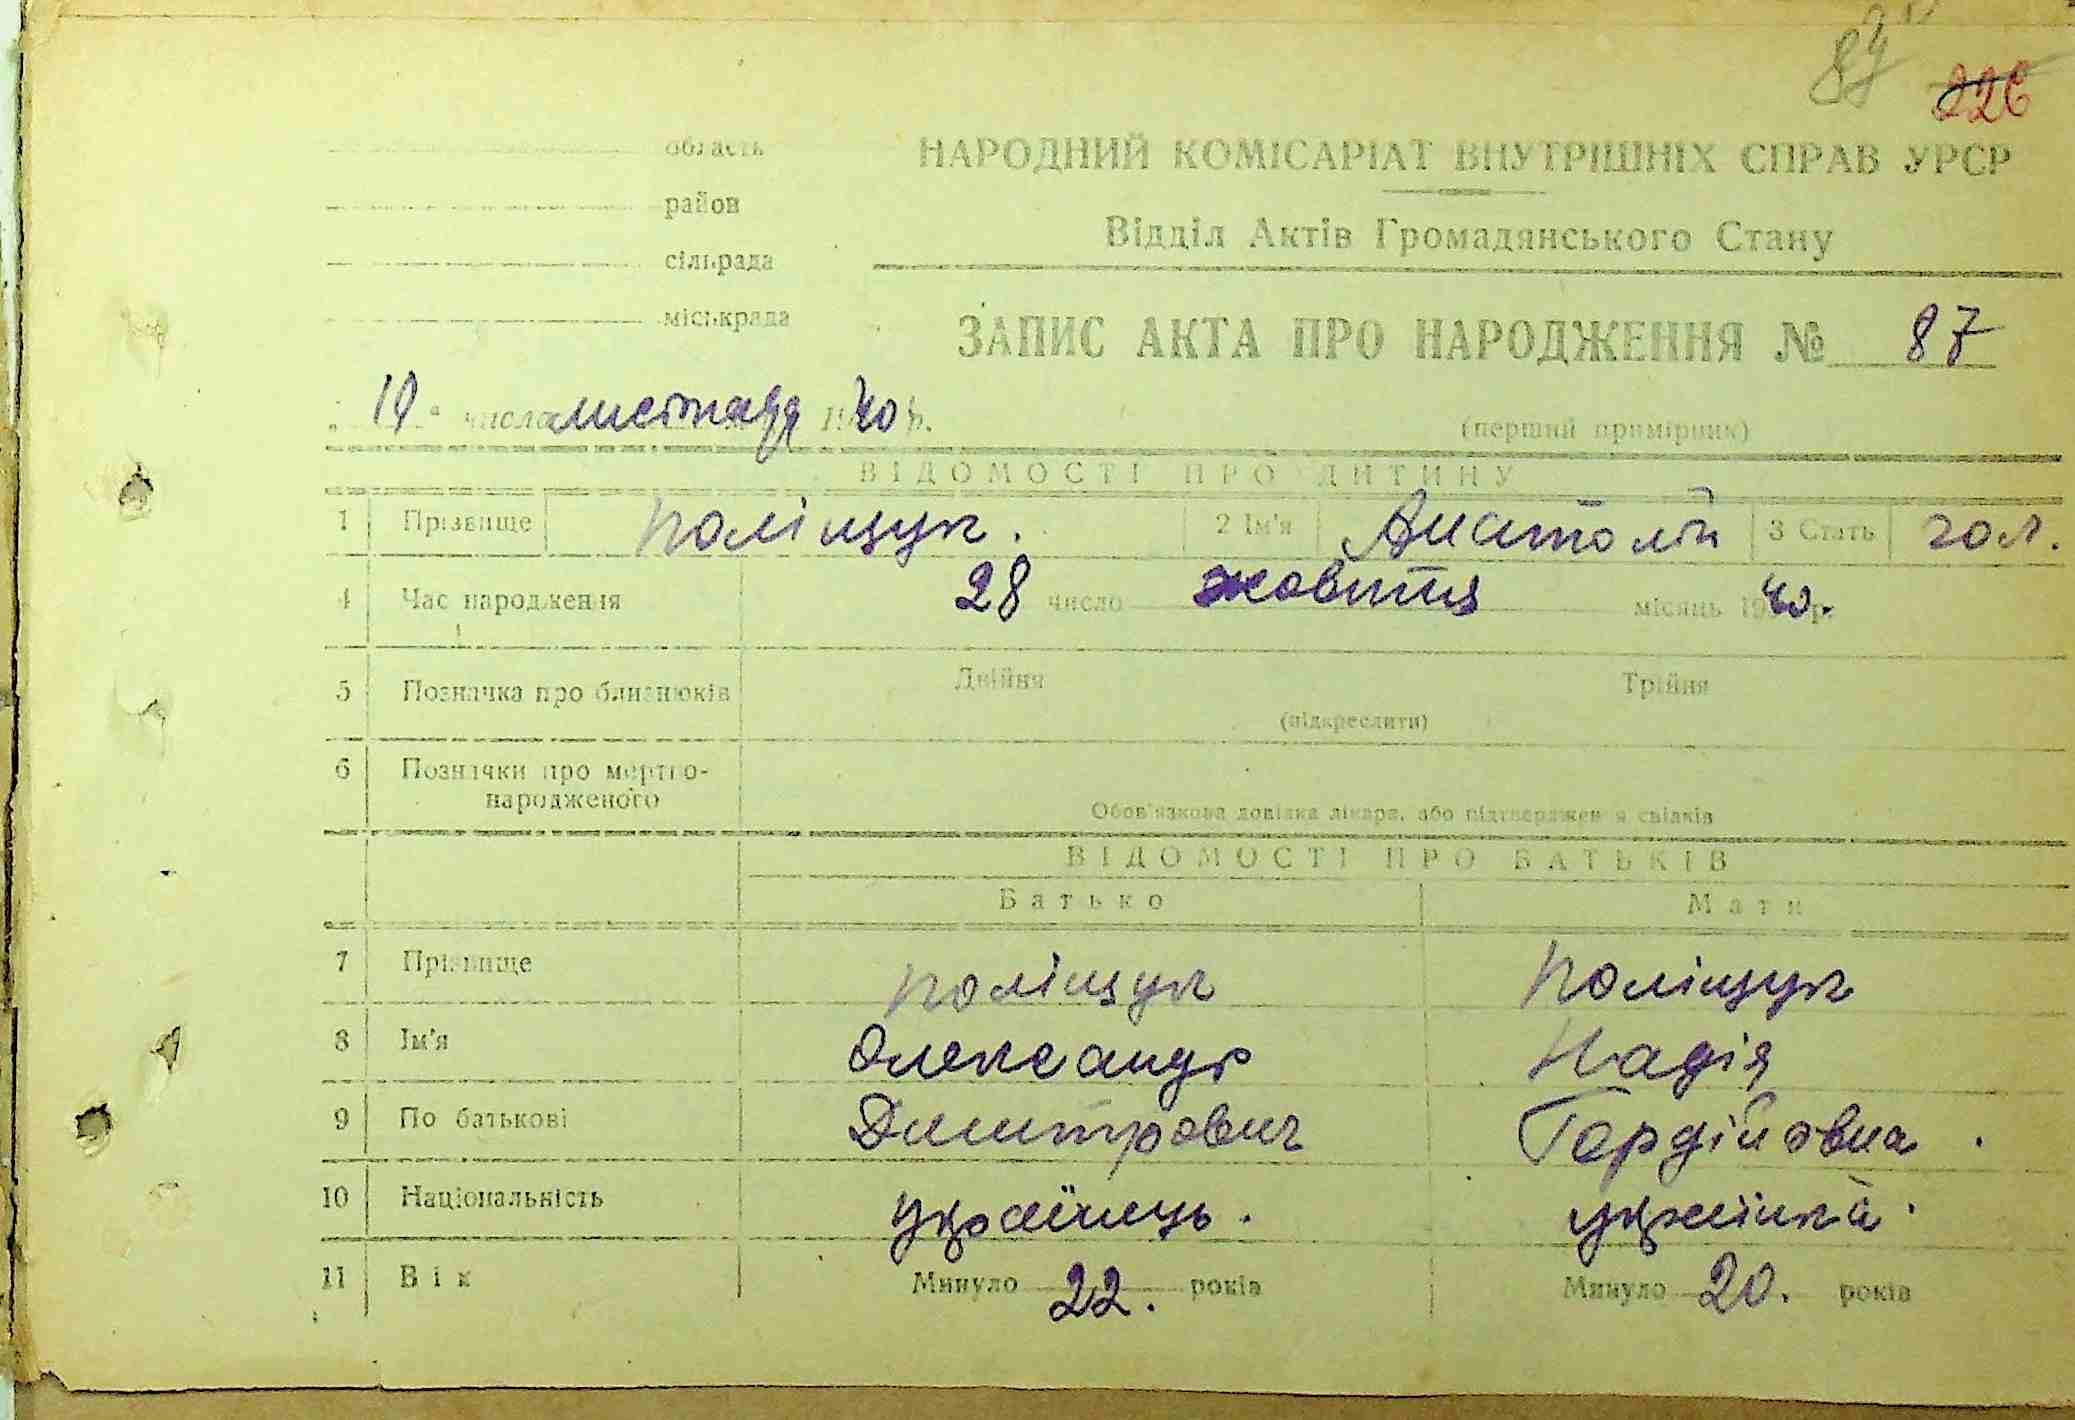 87
226
область
район
сільрада
міськрада
НАРОДНИЙ КОМІСАРІАТ ВНУТРІШНІХ СПРАВ УРСР
Відділ Актів Громадянського Стану
ЗАПИС АКТА ПРО НАРОДЖЕННЯ № 87
числа листопада 1940 р.
(перший примірник)
ВІДОМОСТІ ПРО ДИТИНУ
1 Прізвище Поліщук. 2 Ім'я Анатолій 3 Стать чол.
4 Час народження 28 число жовтня місяць 1940 р.
5 Позначка про близнюків Двійня Трійня
(підкреслити)
6 Позначки про мертво-
народженого
Обов'язкова довідка лікаря, або підтвердження свідків
ВІДОМОСТІ ПРО БАТЬКІВ
Батько Мати
7 Прізвище Поліщук Поліщук
8 Ім'я Олександр Надія
9 По батькові Дмитрович Гордіївна
10 Національність українець. українка.
11 Вік Минуло 22. років Минуло 20. років